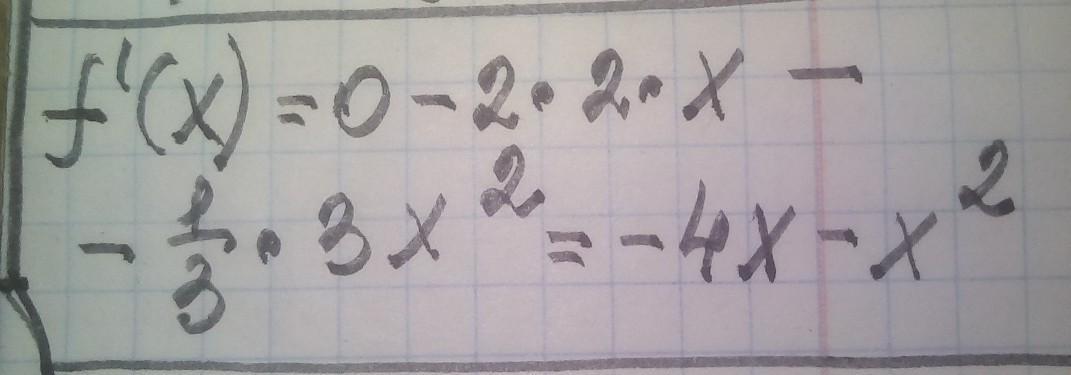 f'(x) = 0 - 2 · 2 · x -
- 1/3 · 3x² = -4x - x²